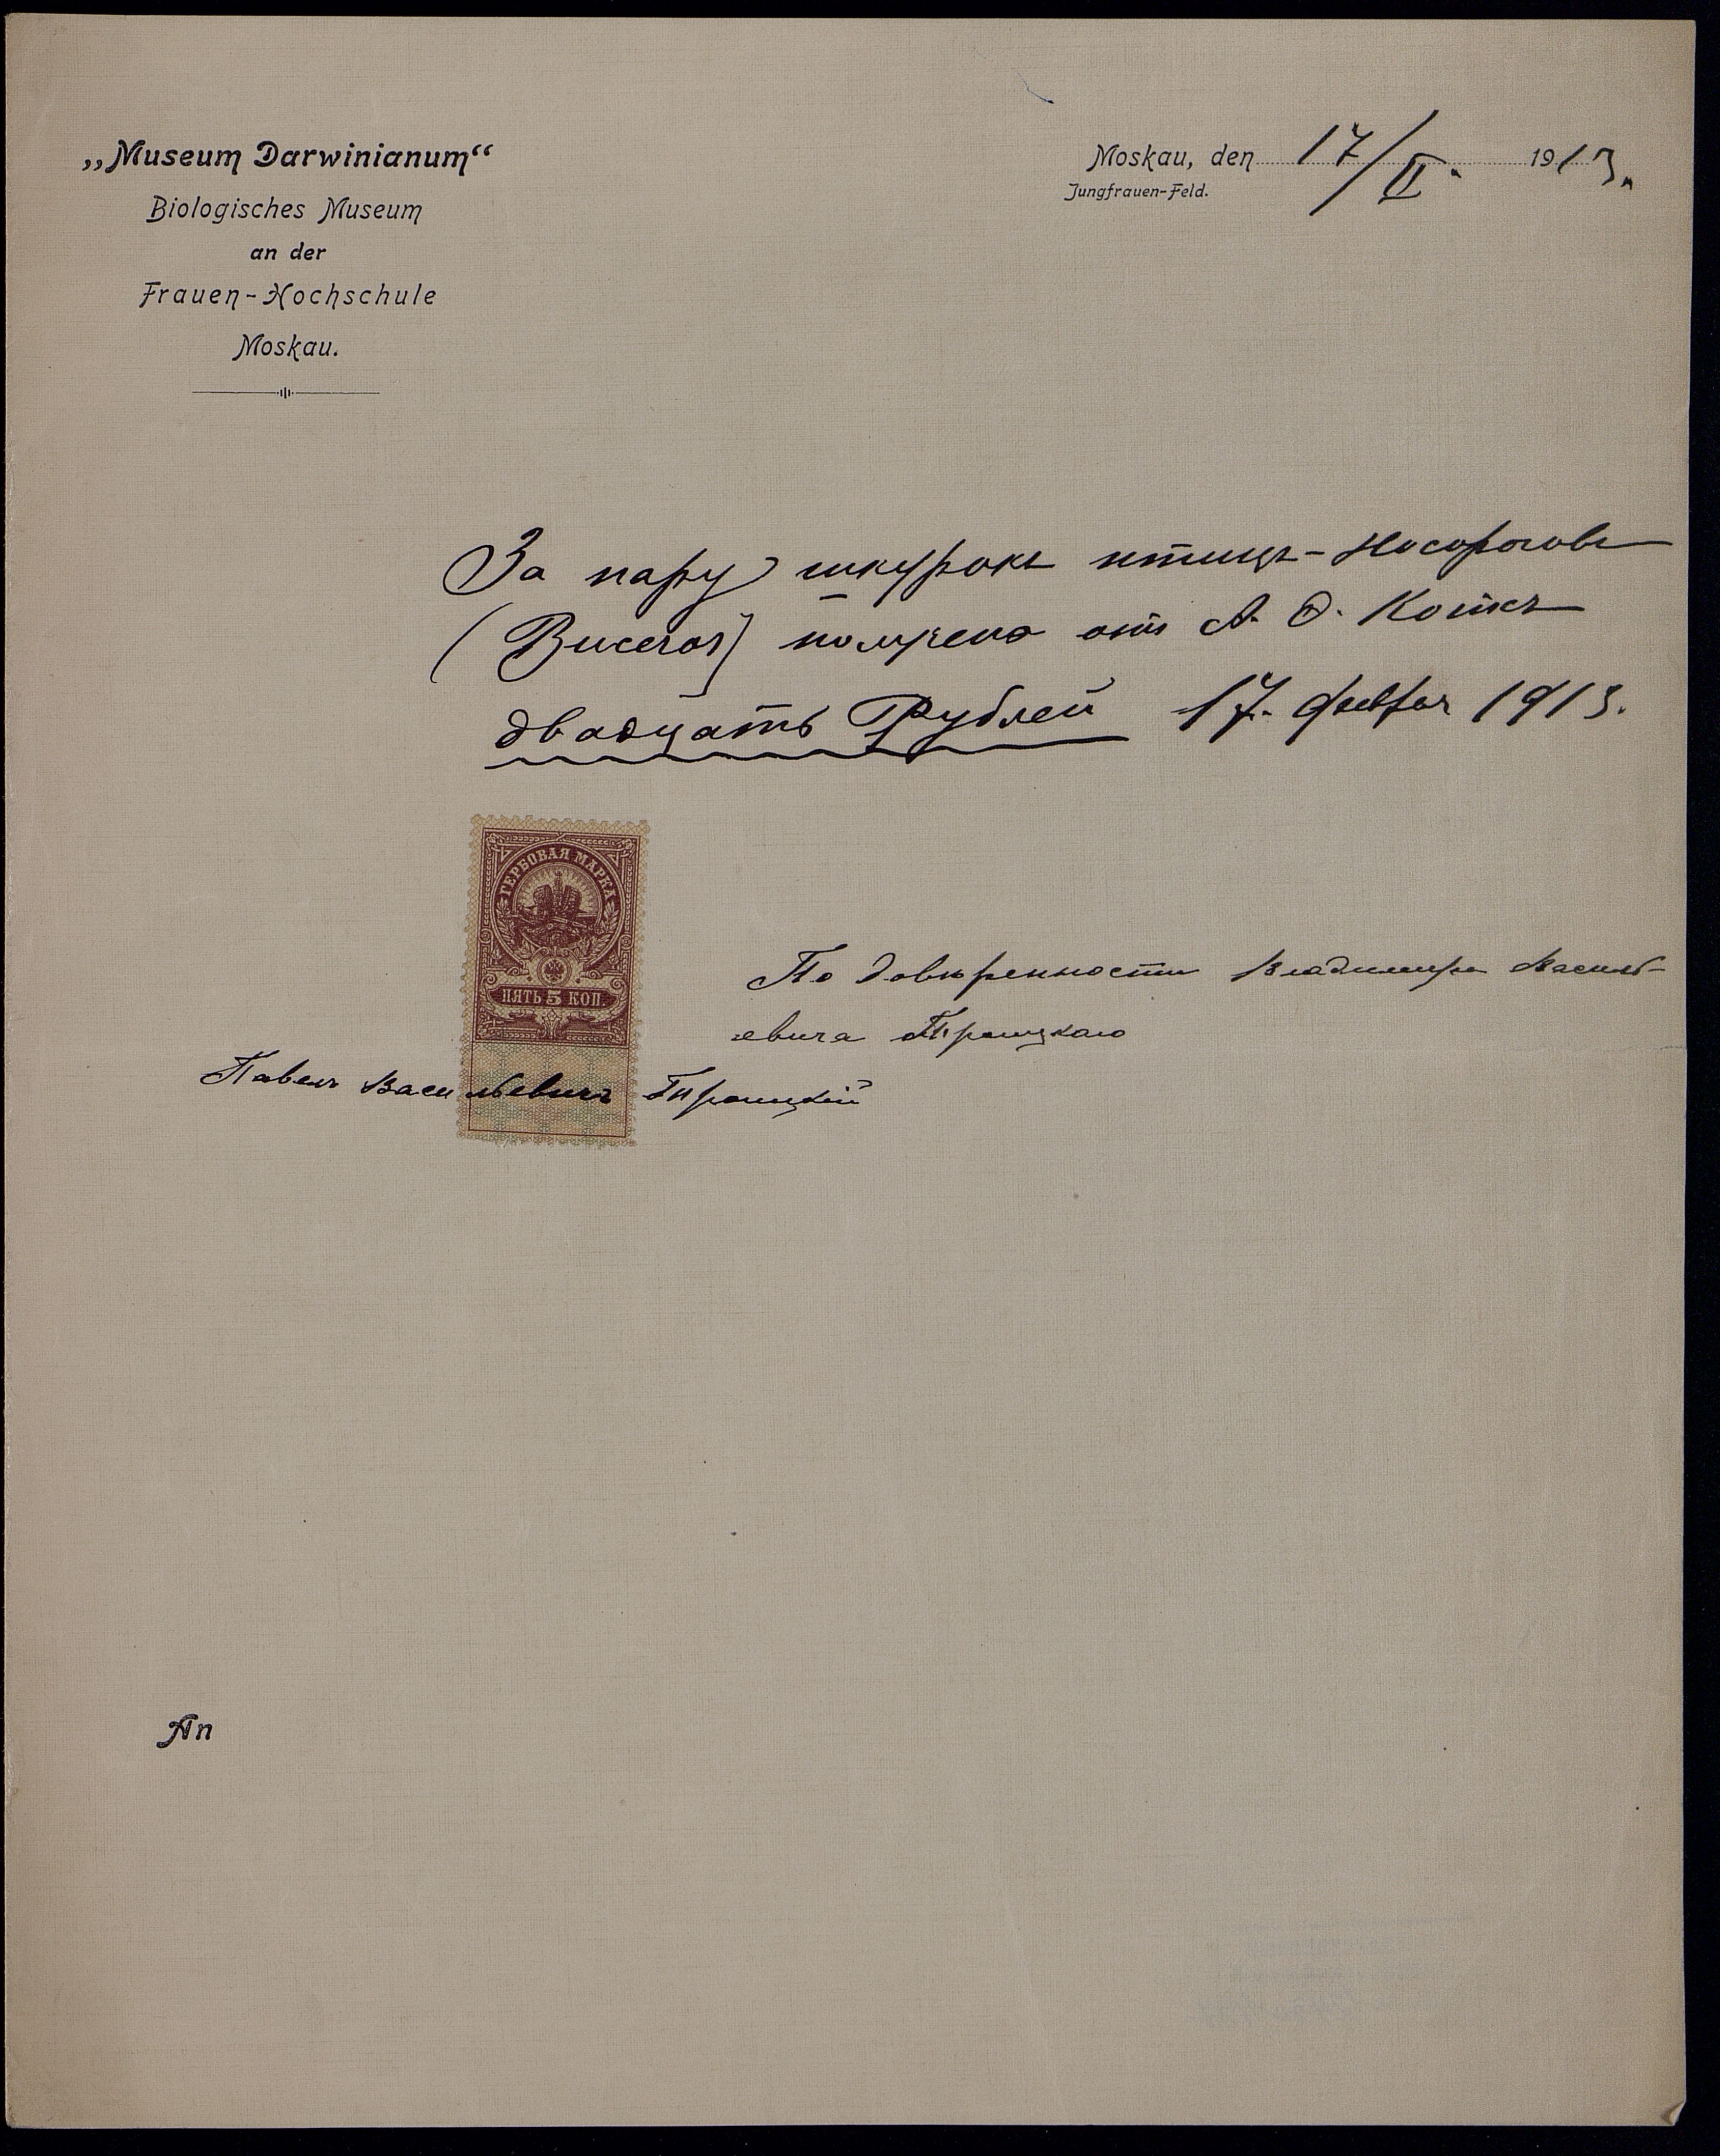 „Museum Darwinianum“
Biologisches Museum
an der
Frauen-Hochschule
Moskau.
Moskau, den 17/II. 1913.
Jungfrauen-Feld.
За пару шкурокъ птицъ-Носороговъ
(Buceros) получено отъ А. Ѳ. Котсъ
двадцать Рублей 17. Февр 1913.
ГЕРБОВАЯ МАРКА
ПЯТЬ 5 КОП.
По довѣренности Владимира Василь-
евича Троицкаго
Павелъ Васильевичъ Троицкій
An